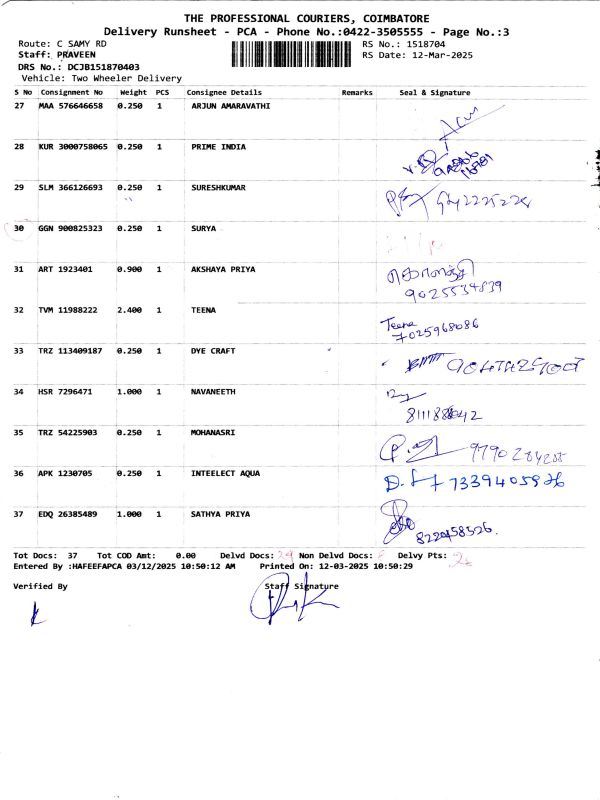 THE PROFESSIONAL COURIERS, COIMBATORE
Delivery Runsheet - PCA - Phone No.:0422-3505555 - Page No.:3
Route: C SAMY RD RS No.: 1518704
Staff: PRAVEEN RS Date: 12-Mar-2025
DRS No.: DCJB151870403
Vehicle: Two Wheeler Delivery
S No Consignment No Weight PCS Consignee Details Remarks Seal & Signature
27 MAA 576646658 0.250 1 ARJUN AMARAVATHI
28 KUR 3000758065 0.250 1 PRIME INDIA
29 SLM 366126693 0.250 1 SURESHKUMAR
30 GGN 900825323 0.250 1 SURYA
31 ART 1923401 0.900 1 AKSHAYA PRIYA
9025534839
32 TVM 11988222 2.400 1 TEENA Teena
7025968086
33 TRZ 113409187 0.250 1 DYE CRAFT
34 HSR 7296471 1.000 1 NAVANEETH
35 TRZ 54225903 0.250 1 MOHANASRI
36 APK 1230705 0.250 1 INTEELECT AQUA 7339405926
37 EDQ 26385489 1.000 1 SATHYA PRIYA
8220458526
Tot Docs: 37 Tot COD Amt: 0.00 Delvd Docs: 29 Non Delvd Docs: 8 Delvy Pts:
Entered By :HAFEEFAPCA 03/12/2025 10:50:12 AM Printed On: 12-03-2025 10:50:29
Verified By Staff Signature